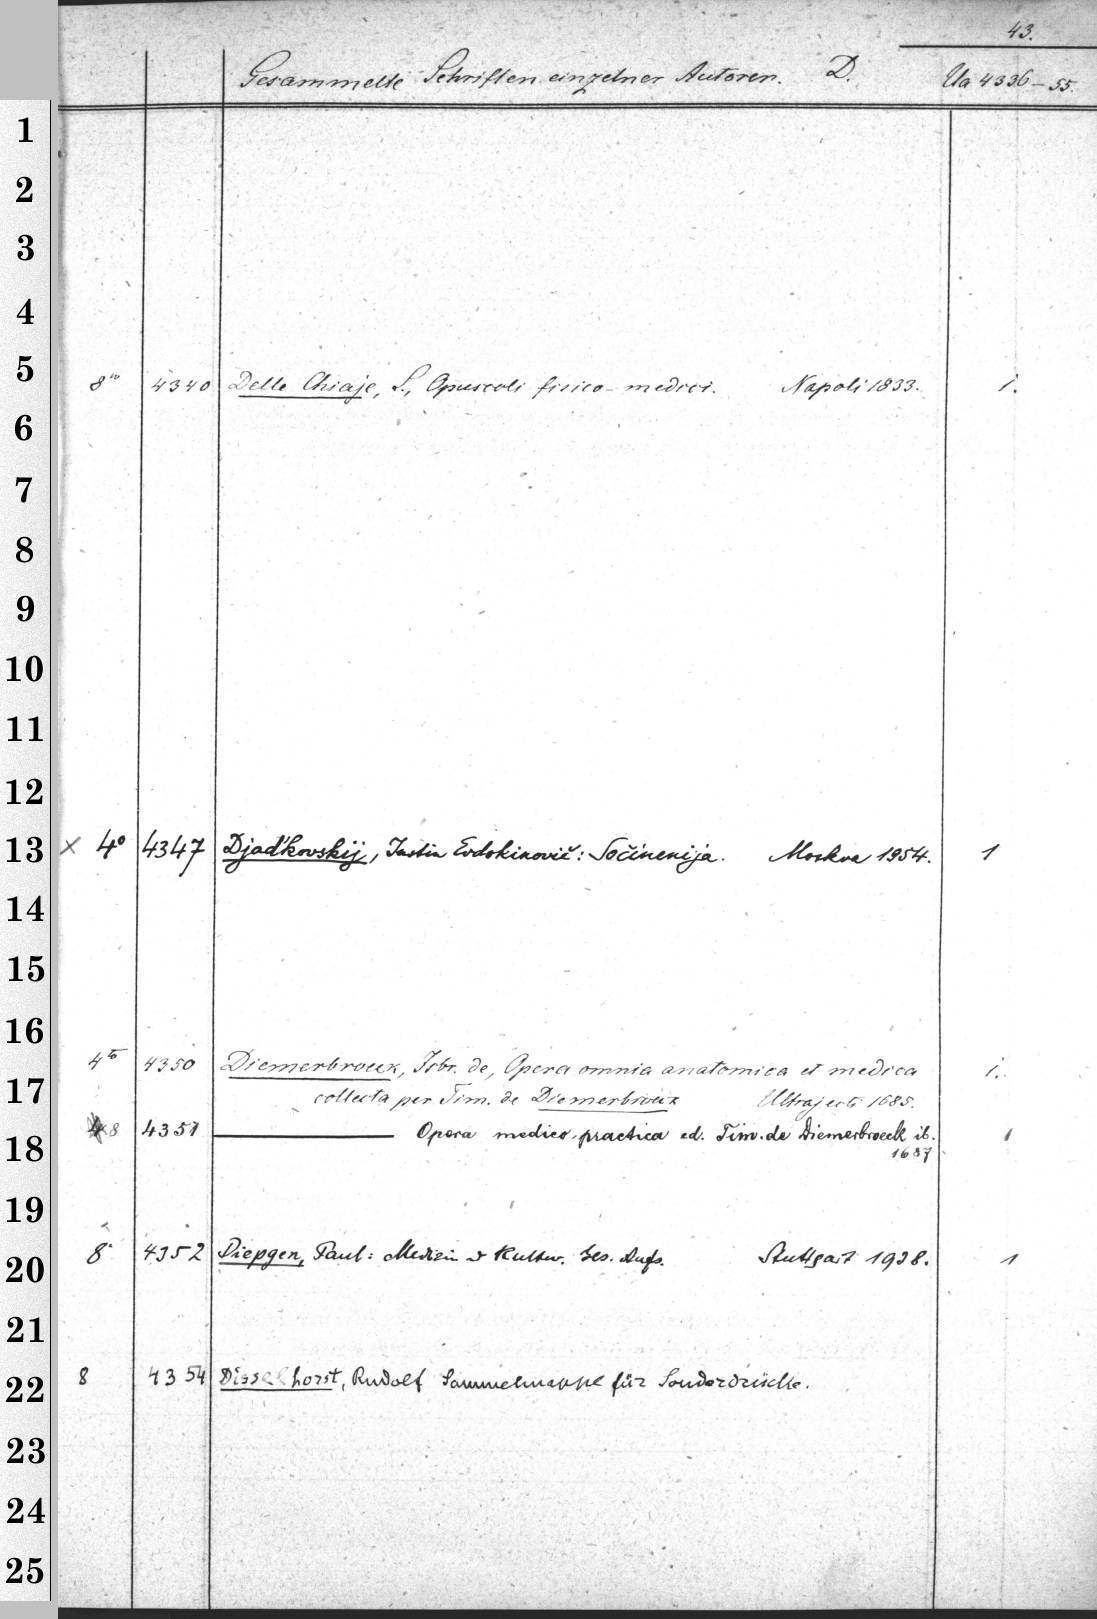 43.
Gesammelte Schriften einzelner Autoren. D. Ua 4336-55.
1
2
3
4
5
8vo 4340 Delle Chiaje, S., Opuscoli fisico-medici. Napoli 1833. 1.
6
7
8
9
10
11
12
13
× 4° 4347 Djad'kovskij, Justin Evdokimovič: Sočinenija. Moskva 1954. 1
14
15
16
4to 4350 Diemerbroeck, Isbr. de, Opera omnia anatomica et medica 1.
17
collecta per Tim. de Diemerbroeck Ultrajecti 1685.
8 4351 ——— Opera medico-practica ed. Tim. de Diemerbroeck ib. 1
18
1687
19
8° 4352 Diepgen, Paul: Medizin u Kultur. Ges. Aufs. Stuttgart 1938. 1
20
21
8 4354 Disselhorst, Rudolf Sammelmappe für Sonderdrücke.
22
23
24
25